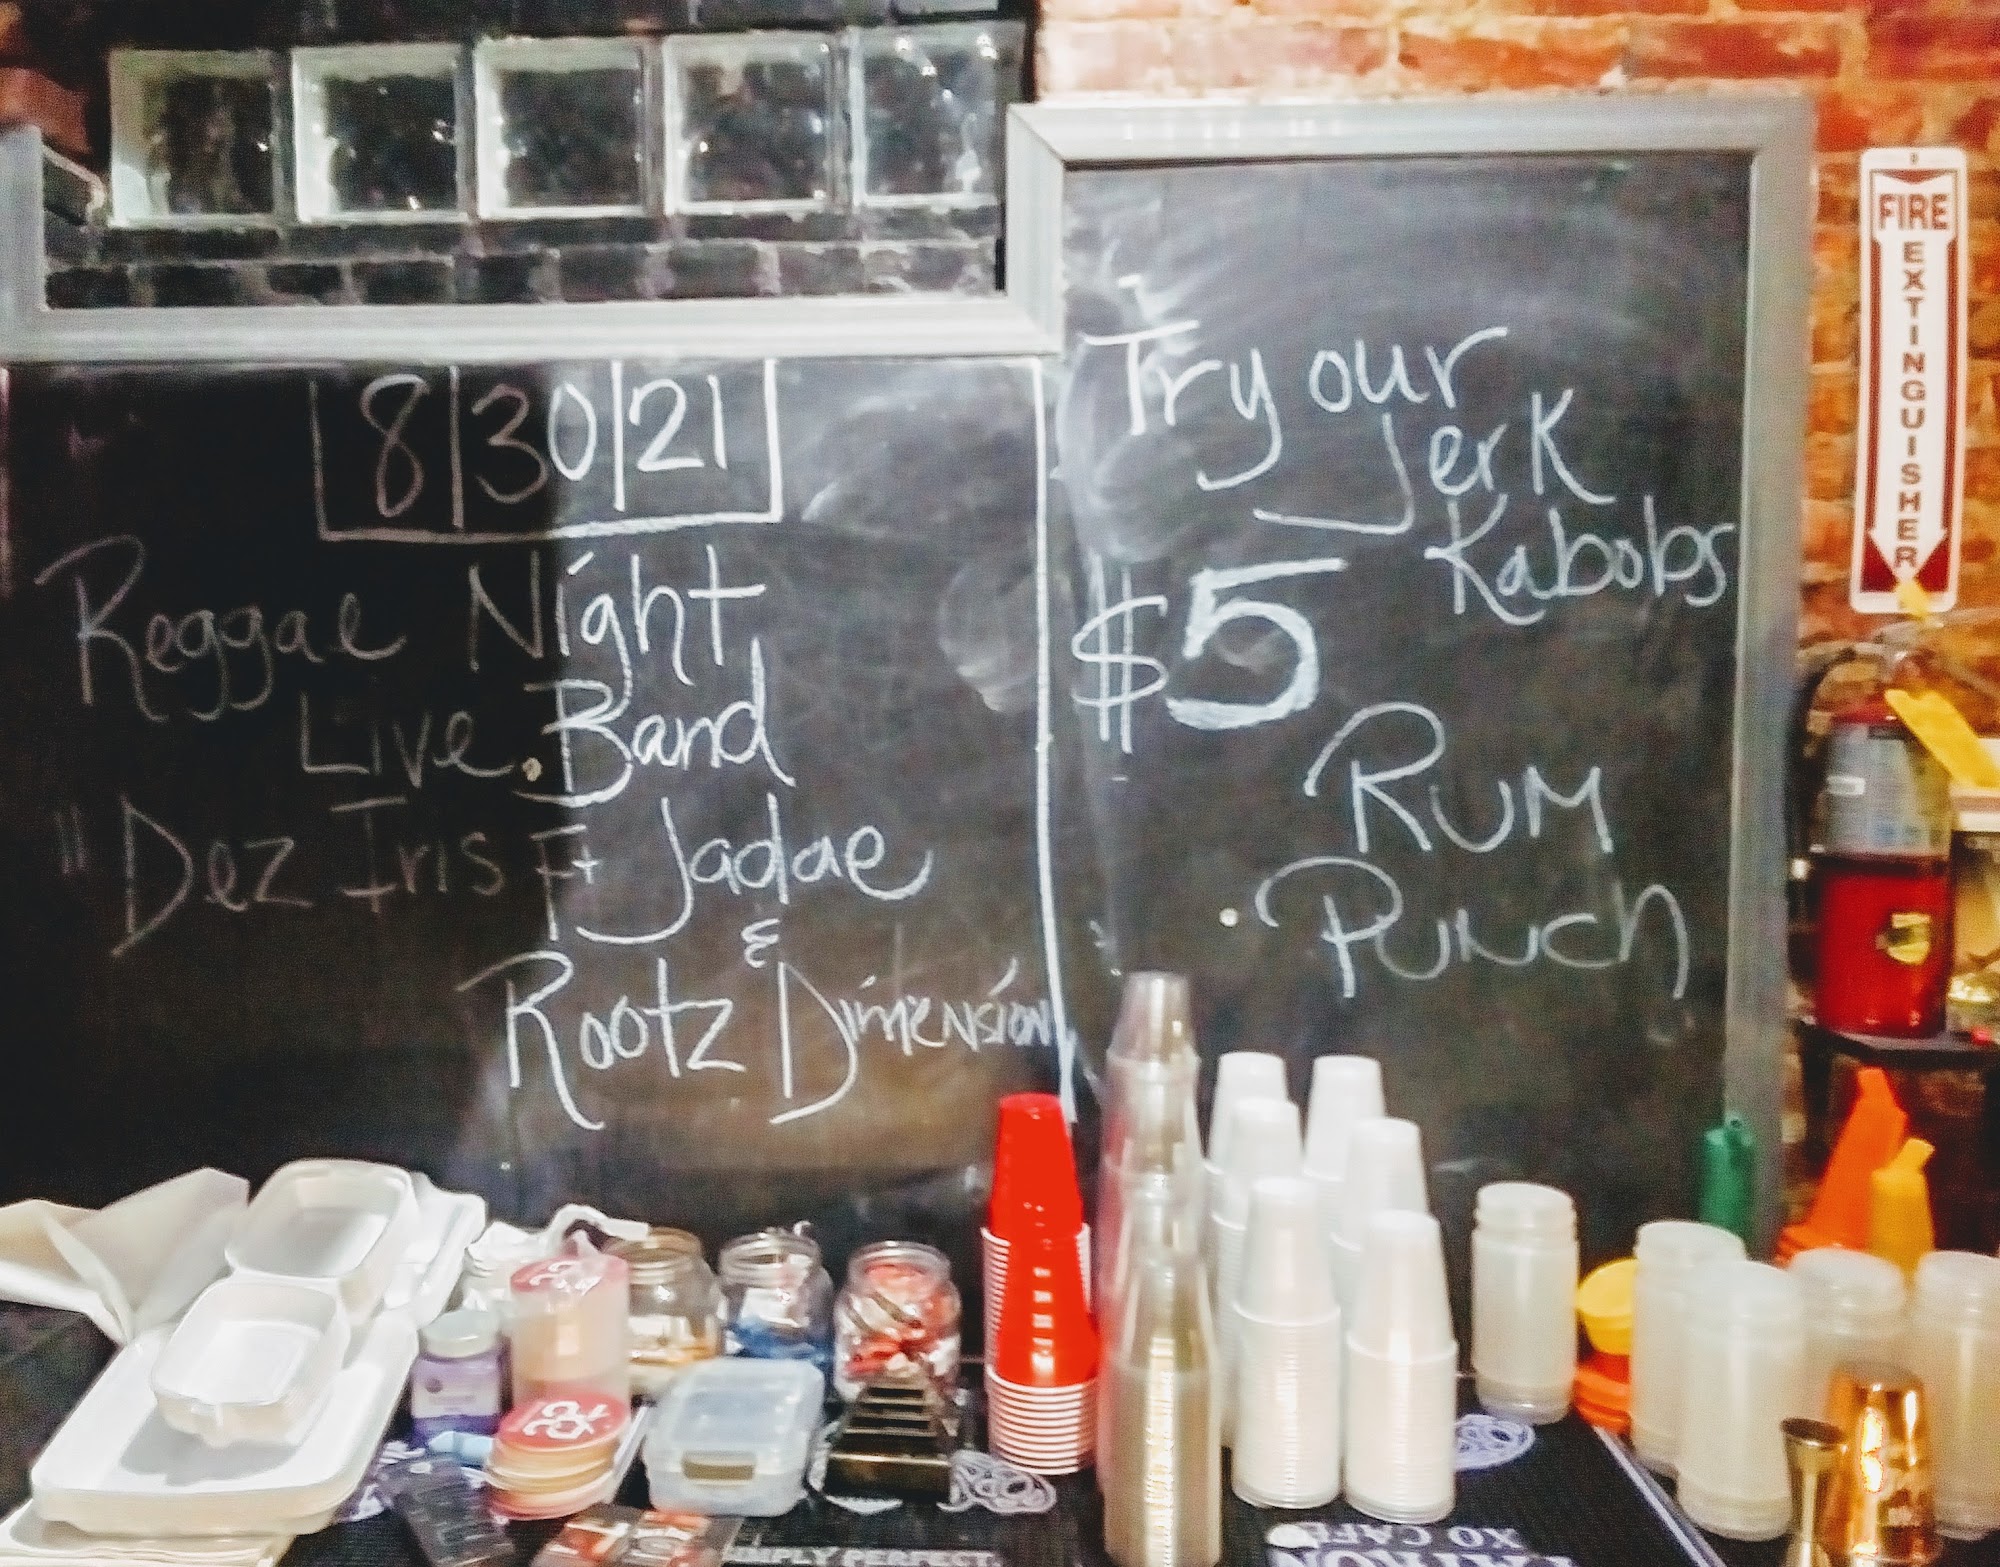 8|30|21
Reggae Night
Live Band
"Dez Iris Ft Jadae
&
Rootz Dimension
Try our
Jerk
Kabobs
$5
Rum
Punch
FIRE
EXTINGUISHER
SIMPLY PERFECT.
XO CAFE
PATRON